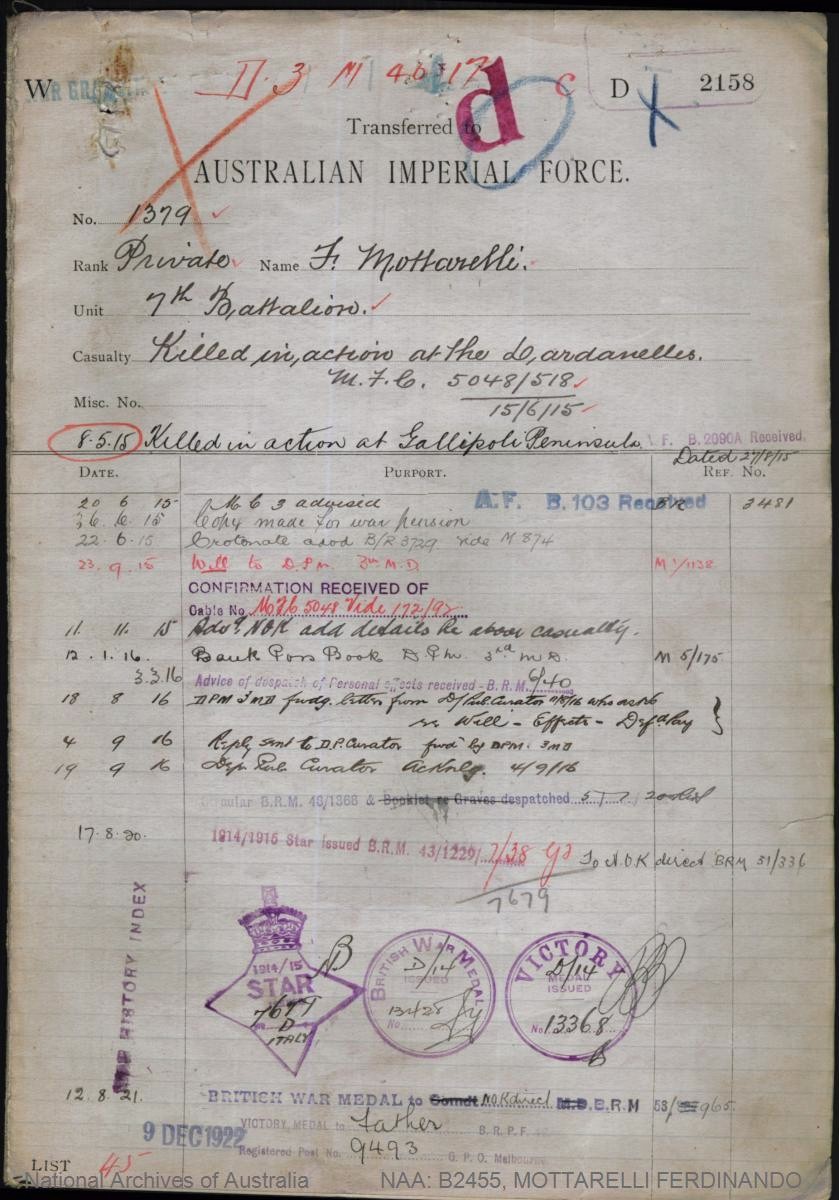 W D 3 M 4617 C D 2158
d
Transferred to
AUSTRALIAN IMPERIAL FORCE.
No. 1379
Rank Private Name F. Mottarelli.
Unit 7th Battalion.
Casualty Killed in action at the Dardanelles.
M.F.C. 5048/518
Misc. No. 15/6/15
8.5.15 Killed in action at Gallipoli Peninsula A.F. B.2090A Received.
Dated 27/8/15
DATE. PURPORT. REF. No.
20 6 15 advised A.F. B.103 Received 3481
6. 15 Copy made for war pension
22.6.15 B/R 3729 vide M 874
23.9.15 Will to D.P.M. 3rd M.D. M 1/1138
CONFIRMATION RECEIVED OF
Cable No. 5048 Vide 172/92
11. 11. 15 NOK add details re above casualty.
12.1.16. Bank Pass Book D.P.M. 3rd M.D. M 5/175
3.3.16 Advice of despatch of Personal effects received - B.R.M. 9/40
18 8 16 DPM 3MD fwdg. letter from D/Pub Curator who asks
re Will - Effects - Defd Pay
4 9 16 Reply sent to D.P. Curator fwd by DPM. 3MD
19 9 16 Dep. Pub. Curator Acknlg. 4/9/16
Circular B.R.M. 43/1368 & Booklet re Graves despatched
17.8.20. 1914/1915 Star issued B.R.M. 43/1229/ 7/38
To N.O.K direct BRM 51/336
7679
WAR HISTORY INDEX
1914/15
STAR
7679
D
ITALY
BRITISH WAR MEDAL
D/14
ISSUED
No.
VICTORY
D/14
MEDAL
ISSUED
No. 13368
12.8.21. BRITISH WAR MEDAL to Comdt NOK direct M.D.B.R.M 53/965
VICTORY MEDAL to Father B.R.P.F.
9 DEC 1922
Registered Post No. 9493 G.P.O. Melbourne.
LIST 45
National Archives of Australia NAA: B2455, MOTTARELLI FERDINANDO